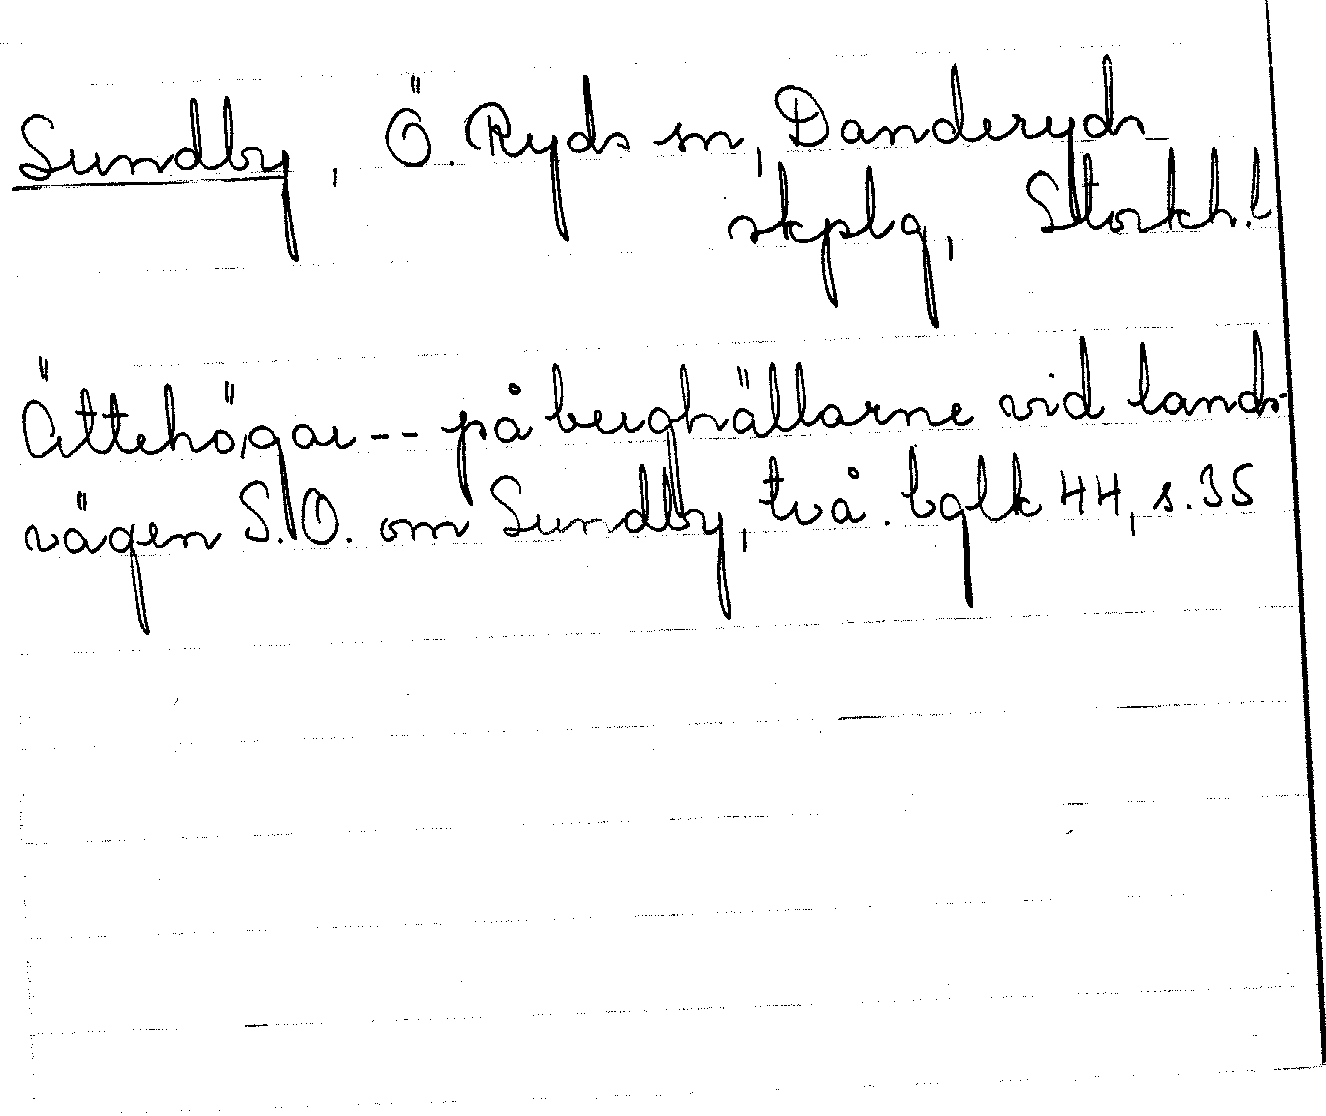 Sundby, Ö. Ryds sn, Danderyds
skplg, Stockh. l
Ättehögar -- på berghällarne vid lands-
vägen S.O. om Sundby, två. bglk 44, s. 35